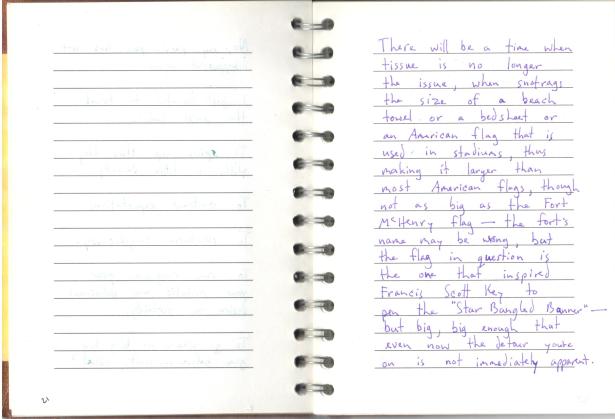 There will be a time when
tissue is no longer
the issue, when snotrags
the size of a beach
towel or a bedsheet or
an American flag that is
used in stadiums, thus
making it larger than
most American flags, though
not as big as the Fort
McHenry flag — the fort's
name may be wrong, but
the flag in question is
the one that inspired
Francis Scott Key to
pen the "Star Bangled Banner" —
but big, big enough that
even now the detour you're
on is not immediately apparent.